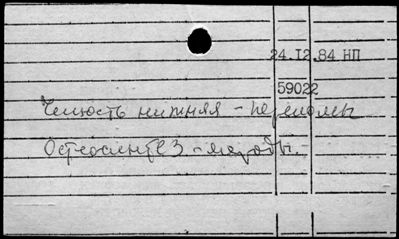 24.12.84 НП
59022
Челюсть нижняя - переломы
Остеосинтез - методы.-